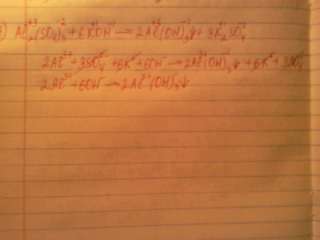 ) Al₂⁺³(SO₄)₃⁻² + 6KOH → 2Al⁺³(OH)₃⁻↓ + 3K₂⁺SO₄⁻²
2Al⁺³ + 3SO₄⁻² + 6K⁺ + 6OH⁻ → 2Al⁺³(OH)₃↓ + 6K⁺ + 3SO₄
2Al⁺³ + 6OH⁻ → 2Al⁺³(OH)₃↓